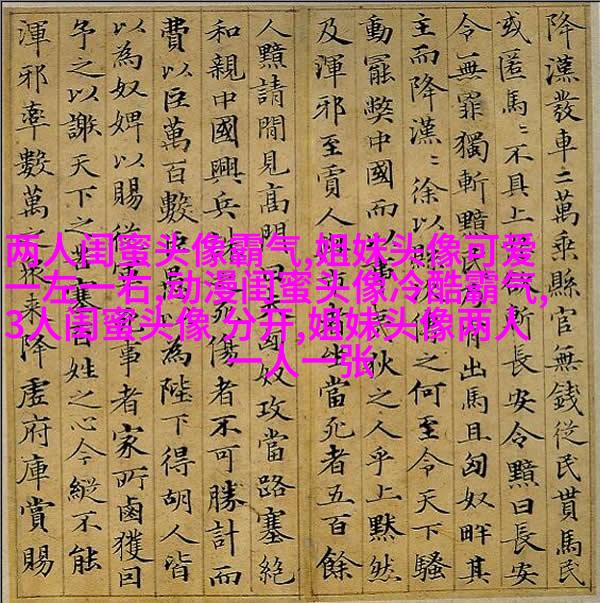 降漢發車二萬乘縣官無錢從民貰馬民
或匿馬〻不具上欲斬長安令黯曰長安
令無罪獨斬黯民肯出馬且匈奴畔其
主而降漢〻徐以縣次傳之何至令天下騷
動罷弊中國而以事夷狄之人乎上默然
及渾邪至賈人與市者坐當死者五百餘
人黯請閒見高門曰夫匈奴攻當路塞絕
和親中國興兵誅之死傷者不可勝計而
費以巨萬百數臣愚以為陛下得胡人皆
以為奴婢以賜從軍死事者家所鹵獲因
予之以謝天下之苦塞百姓之心今縱不能
渾邪率數萬之眾來降虛府庫賞賜
两人闺蜜头像霸气,姐妹头像可爱
一左一右,动漫闺蜜头像冷酷霸气,
3人闺蜜头像 分开,姐妹头像两人
一人一张